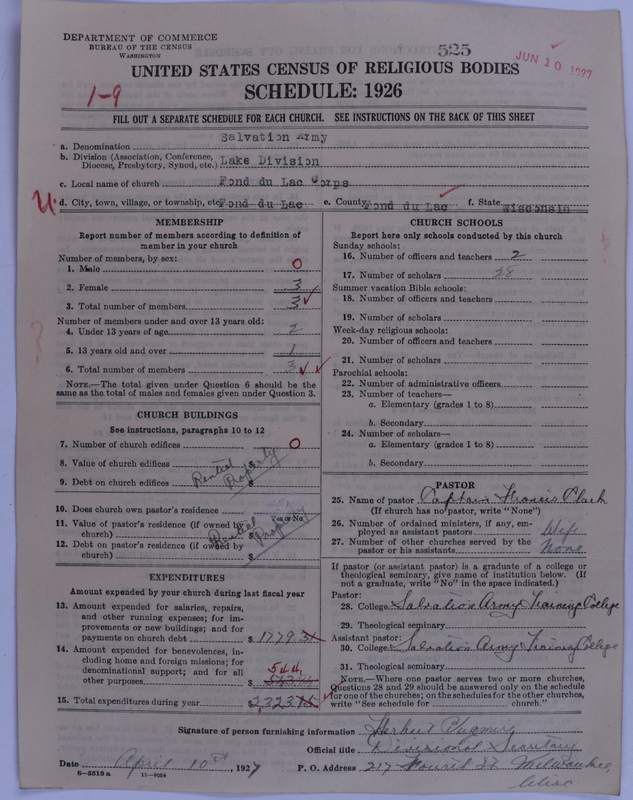 DEPARTMENT OF COMMERCE
BUREAU OF THE CENSUS
WASHINGTON
525
JUN 10 1927
UNITED STATES CENSUS OF RELIGIOUS BODIES
SCHEDULE: 1926
1-9
FILL OUT A SEPARATE SCHEDULE FOR EACH CHURCH. SEE INSTRUCTIONS ON THE BACK OF THIS SHEET
a. Denomination Salvation Army
b. Division (Association, Conference, Diocese, Presbytery, Synod, etc.) Lake Division
c. Local name of church Fond du Lac Corps
d. City, town, village, or township, etc. Fond du Lac e. County Fond du Lac f. State Wisconsin
MEMBERSHIP
Report number of members according to definition of
member in your church
Number of members, by sex:
1. Male 0
2. Female 3
3. Total number of members 3
Number of members under and over 13 years old:
4. Under 13 years of age 2
5. 13 years old and over 1
6. Total number of members 3
NOTE.—The total given under Question 6 should be
same as the total of males and females given under Question 3.
CHURCH BUILDINGS
See instructions, paragraphs 10 to 12
7. Number of church edifices 0
8. Value of church edifices
9. Debt on church edifices $
Rented Property
10. Does church own pastor's residence
(Yes or No)
11. Value of pastor's residence (if owned by
church) $
12. Debt on pastor's residence (if owned by
church) $
Rented Property
EXPENDITURES
Amount expended by your church during last fiscal year
13. Amount expended for salaries, repairs,
and other running expenses; for im-
provements or new buildings; and for
payments on church debt $ 1779.31
14. Amount expended for benevolences, in-
cluding home and foreign missions; for
denominational support; and for all
other purposes $
544.
15. Total expenditures during year $
CHURCH SCHOOLS
Report here only schools conducted by this church
Sunday schools:
16. Number of officers and teachers 2
17. Number of scholars 28
Summer vacation Bible schools:
18. Number of officers and teachers
19. Number of scholars
Week-day religious schools:
20. Number of officers and teachers
21. Number of scholars
Parochial schools:
22. Number of administrative officers
23. Number of teachers—
a. Elementary (grades 1 to 8)
b. Secondary
24. Number of scholars—
a. Elementary (grades 1 to 8)
b. Secondary
PASTOR
25. Name of pastor Captain Francis Clark
(If church has no pastor, write "None")
26. Number of ordained ministers, if any, em-
ployed as assistant pastors Wife
27. Number of other churches served by the
pastor or his assistants None
If pastor (or assistant pastor) is a graduate of a college or
theological seminary, give name of institution below. (If
not a graduate, write "No" in the space indicated.)
Pastor:
28. College Salvation Army Training College
29. Theological seminary
Assistant pastor:
30. College Salvation Army Training College
31. Theological seminary
NOTE.—Where one pastor serves two or more churches,
Questions 28 and 29 should be answered only on the schedule
for one of the churches; on the schedules for the other churches,
write "See schedule for church."
Signature of person furnishing information Herbert
Official title Divisional Secretary
Date April 10th, 1927 P. O. Address 217 St Milwaukee,
Wisc
8-5518a 11-9034